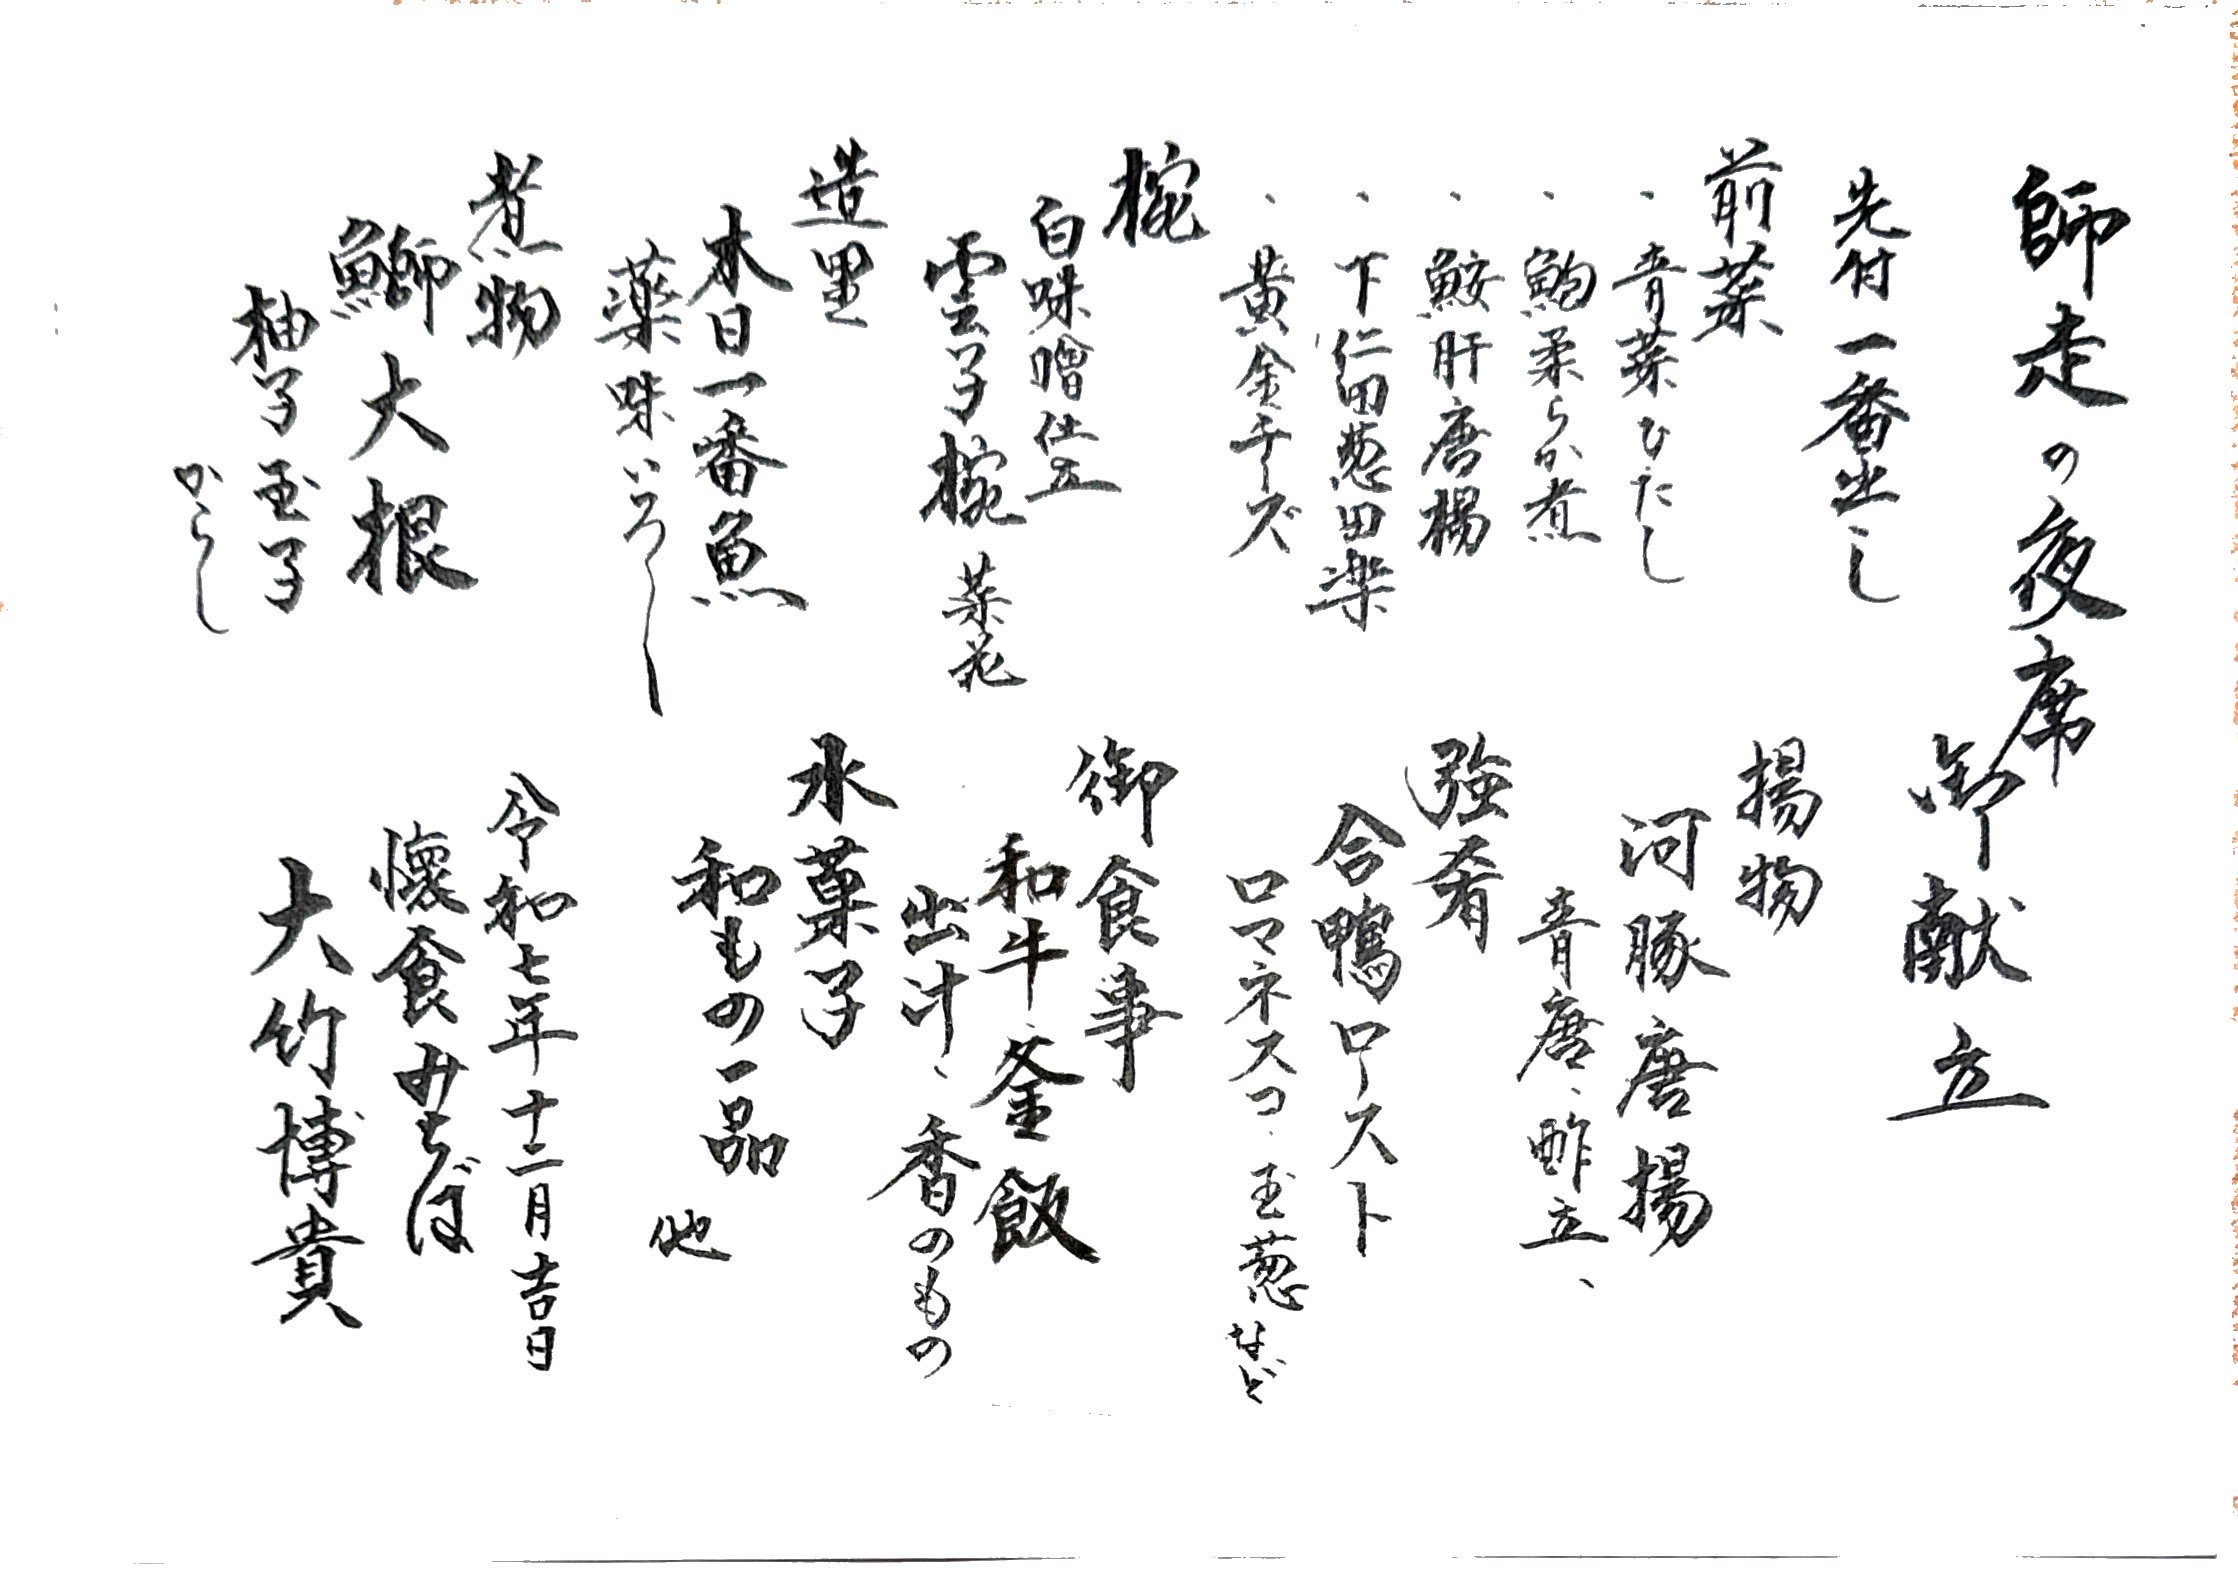 師走の夜席
御献立
先付 一番出し
前菜
、青菜ひたし
、鮑柔らか煮
、鮟肝唐揚
、下仁田葱田楽
、黄金チーズ
椀
白味噌仕立
雲子椀 菜花
造里
本日一番魚
薬味いろ〳〵
煮物
鰤大根
柚子玉子
からし
揚物
河豚唐揚
青唐、酢立、
強肴
合鴨ロースト
ロマネスコ、玉葱など
御食事
和牛釜飯
出汁、香のもの
水菓子
和もの一品
他
令和七年十二月吉日
懐食みちば
大竹博貴